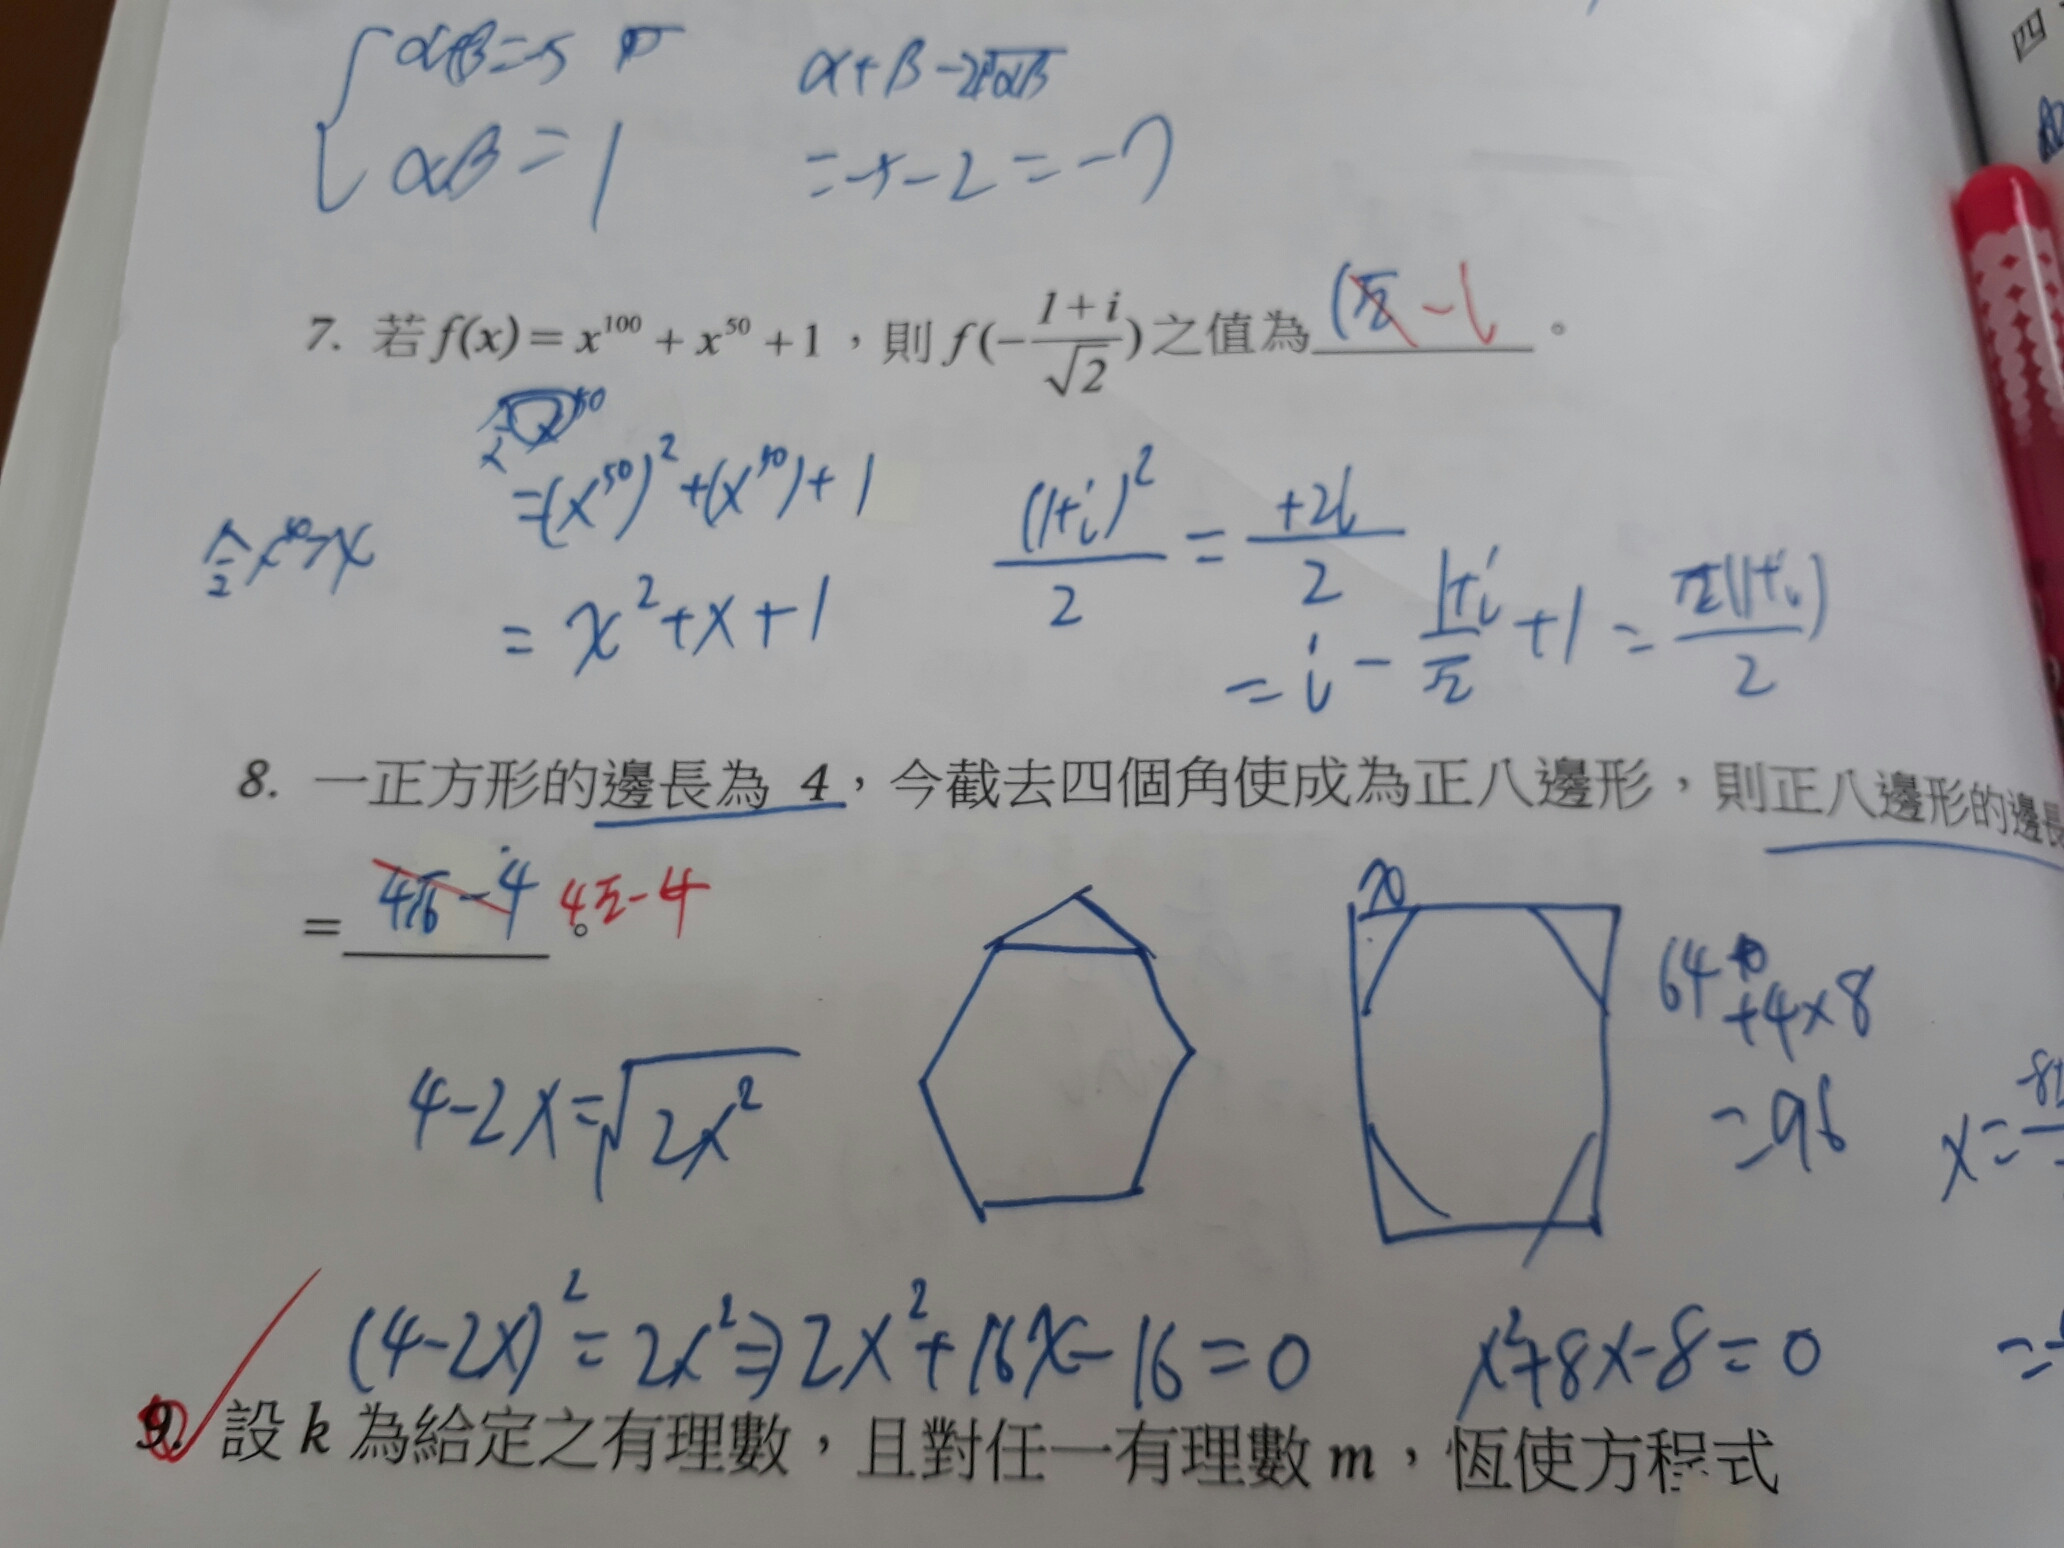 α+β=-5
α+β-2√αβ
αβ=1
=-5-2=-7
7. 若f(x)=x¹⁰⁰+x⁵⁰+1,則f(-(1+i)/√2)之值為 -i 。
=(x⁵⁰)²+(x⁵⁰)+1
=x²+x+1
(1+i)²/2=+2i/2
=i-(1+i)/√2+1=√2(1+i)/2
8. 一正方形的邊長為 4,今截去四個角使成為正八邊形,則正八邊形的邊長
= 4√6-4 。 4√2-4
4-2x=√2x²
64+4×8
=96
x=
(4-2x)²=2x²⇒2x²+16x-16=0
x²+8x-8=0
9. 設 k 為給定之有理數,且對任一有理數 m,恆使方程式